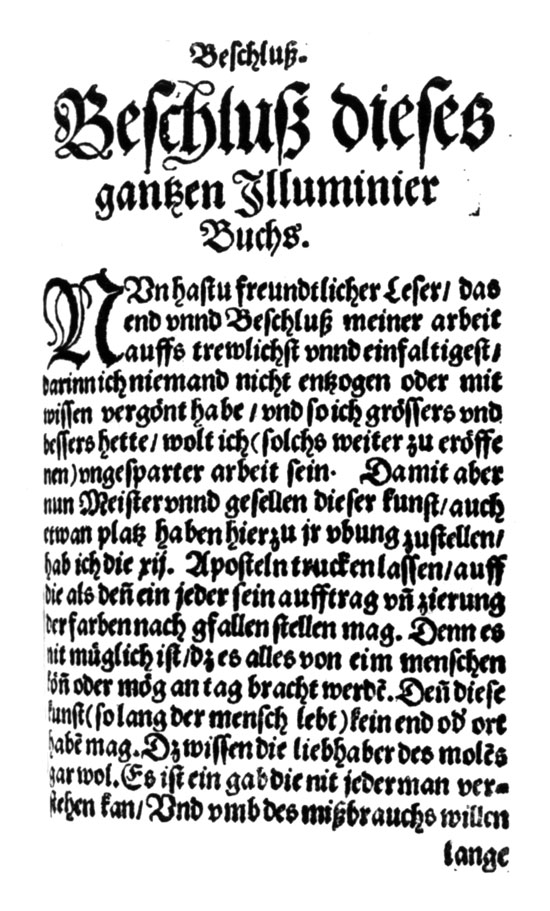 Beschluß.
Beschluß dieses
gantzen Illuminier
Buchs.
NVn hastu freundtlicher Leser/ das
end vnnd Beschluß meiner arbeit
auffs trewlichst vnnd einfaltigest/
darinn ich niemand nicht entzogen oder mit
wissen vergönt habe / vnd so ich grössers vnd
bessers hette/ wolt ich (solchs weiter zu eröffe
nen) vngesparter arbeit sein. Damit aber
nun Meister vnnd gesellen dieser kunst/ auch
etwan platz haben hierzu jr vbung zustellen/
hab ich die xij. Aposteln trucken lassen/ auff
die als deñ ein jeder sein aufftrag vñ zierung
der farben nach gfallen stellen mag. Denn es
nit müglich ist/ dz es alles von eim menschen
köñ oder mög an tag bracht werdē. Deñ diese
kunst (so lang der mensch lebt) kein end od' ort
habē mag. Dz wissen die liebhaber des molēs
gar wol. Es ist ein gab die nit jederman ver=
stehen kan/ Vnd vmb des mißbrauchs willen
lange